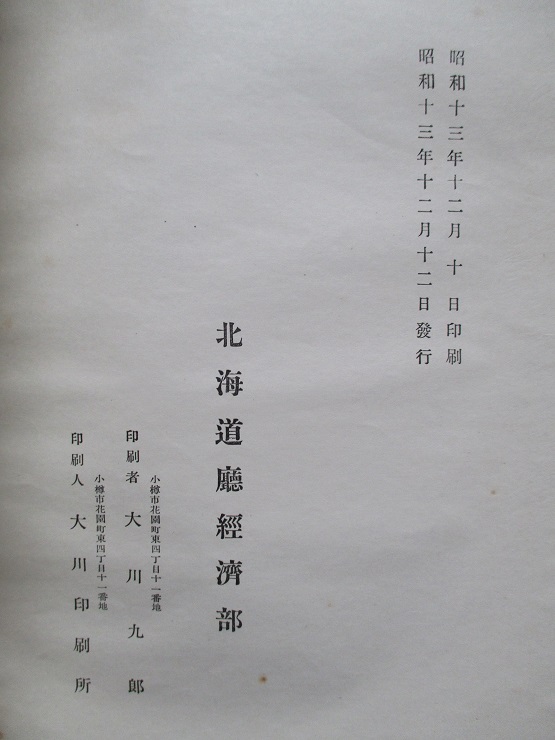 昭和十三年十二月十日印刷
昭和十三年十二月十二日發行
北海道廳經濟部
小樽市花園町東四丁目十一番地
印刷者大川九郎
小樽市花園町東四丁目十一番地
印刷人大川印刷所